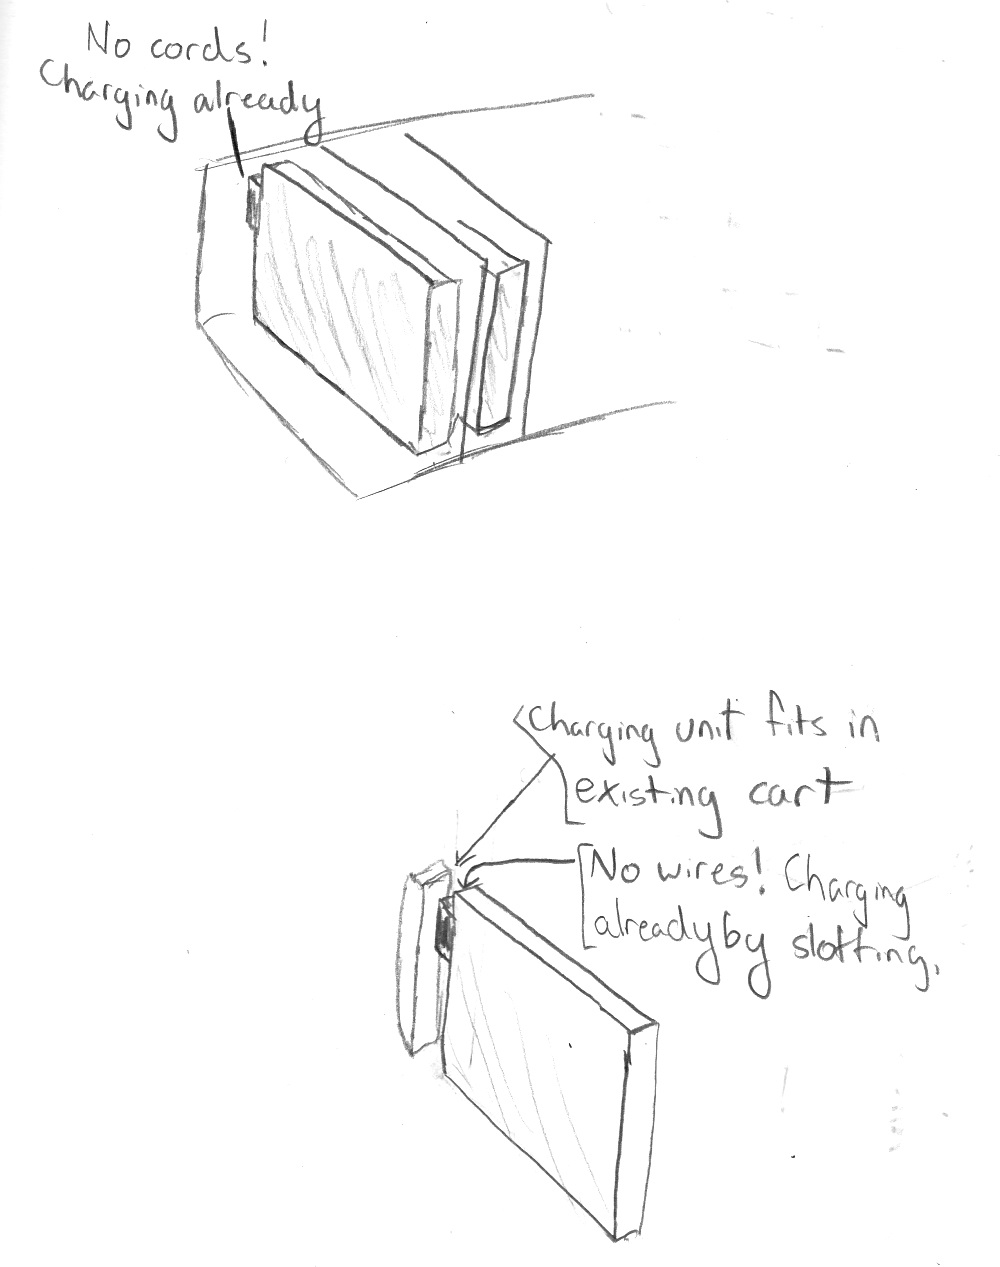 No cords!
Charging already
Charging unit fits in
existing cart
No wires! Charging
already by slotting.